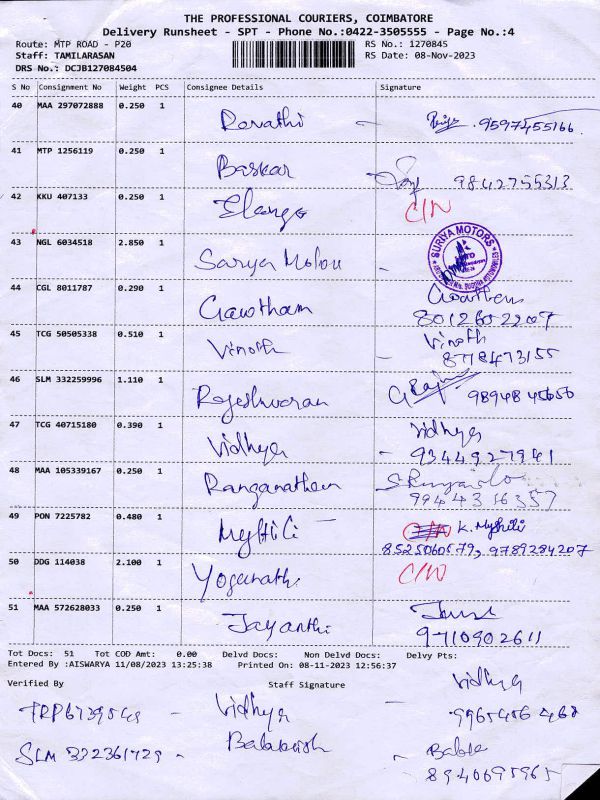 THE PROFESSIONAL COURIERS, COIMBATORE
Delivery Runsheet - SPT - Phone No.:0422-3505555 - Page No.:4
Route: MTP ROAD - P20 RS No.: 1270845
Staff: TAMILARASAN RS Date: 08-Nov-2023
DRS No.: DCJB127084504
S No Consignment No Weight PCS Consignee Details Signature
40 MAA 297072888 0.250 1
Revathi - 9597455166
41 MTP 1256119 0.250 1
Baskar 9842755313
42 KKU 407133 0.250 1
Elango C/N
43 NGL 6034518 2.850 1
SURIYA MOTORS
Surya Motou -
44 CGL 8011787 0.290 1
Gawtham Gowtham
8012602207
45 TCG 50505338 0.510 1
Vinoth Vinoth
8778473155
46 SLM 332259996 1.110 1
Rajeshwaran
47 TCG 40715180 0.390 1
Vidhya Vidhya
9344927941
48 MAA 105339167 0.250 1
Ranganathan
9944316357
49 PON 7225782 0.480 1
Mythili - K. Mythili
8525060579, 9789284207
50 DDG 114038 2.100 1
Yoganath C/N
51 MAA 572628033 0.250 1
Jayanthi
9710902611
Tot Docs: 51 Tot COD Amt: 0.00 Delvd Docs: Non Delvd Docs: Delvy Pts:
Entered By :AISWARYA 11/08/2023 13:25:38 Printed On: 08-11-2023 12:56:37
Verified By Staff Signature
Vidhya
- Vidhya
SLM 332361729 - Balakrish - Babla
8940695965